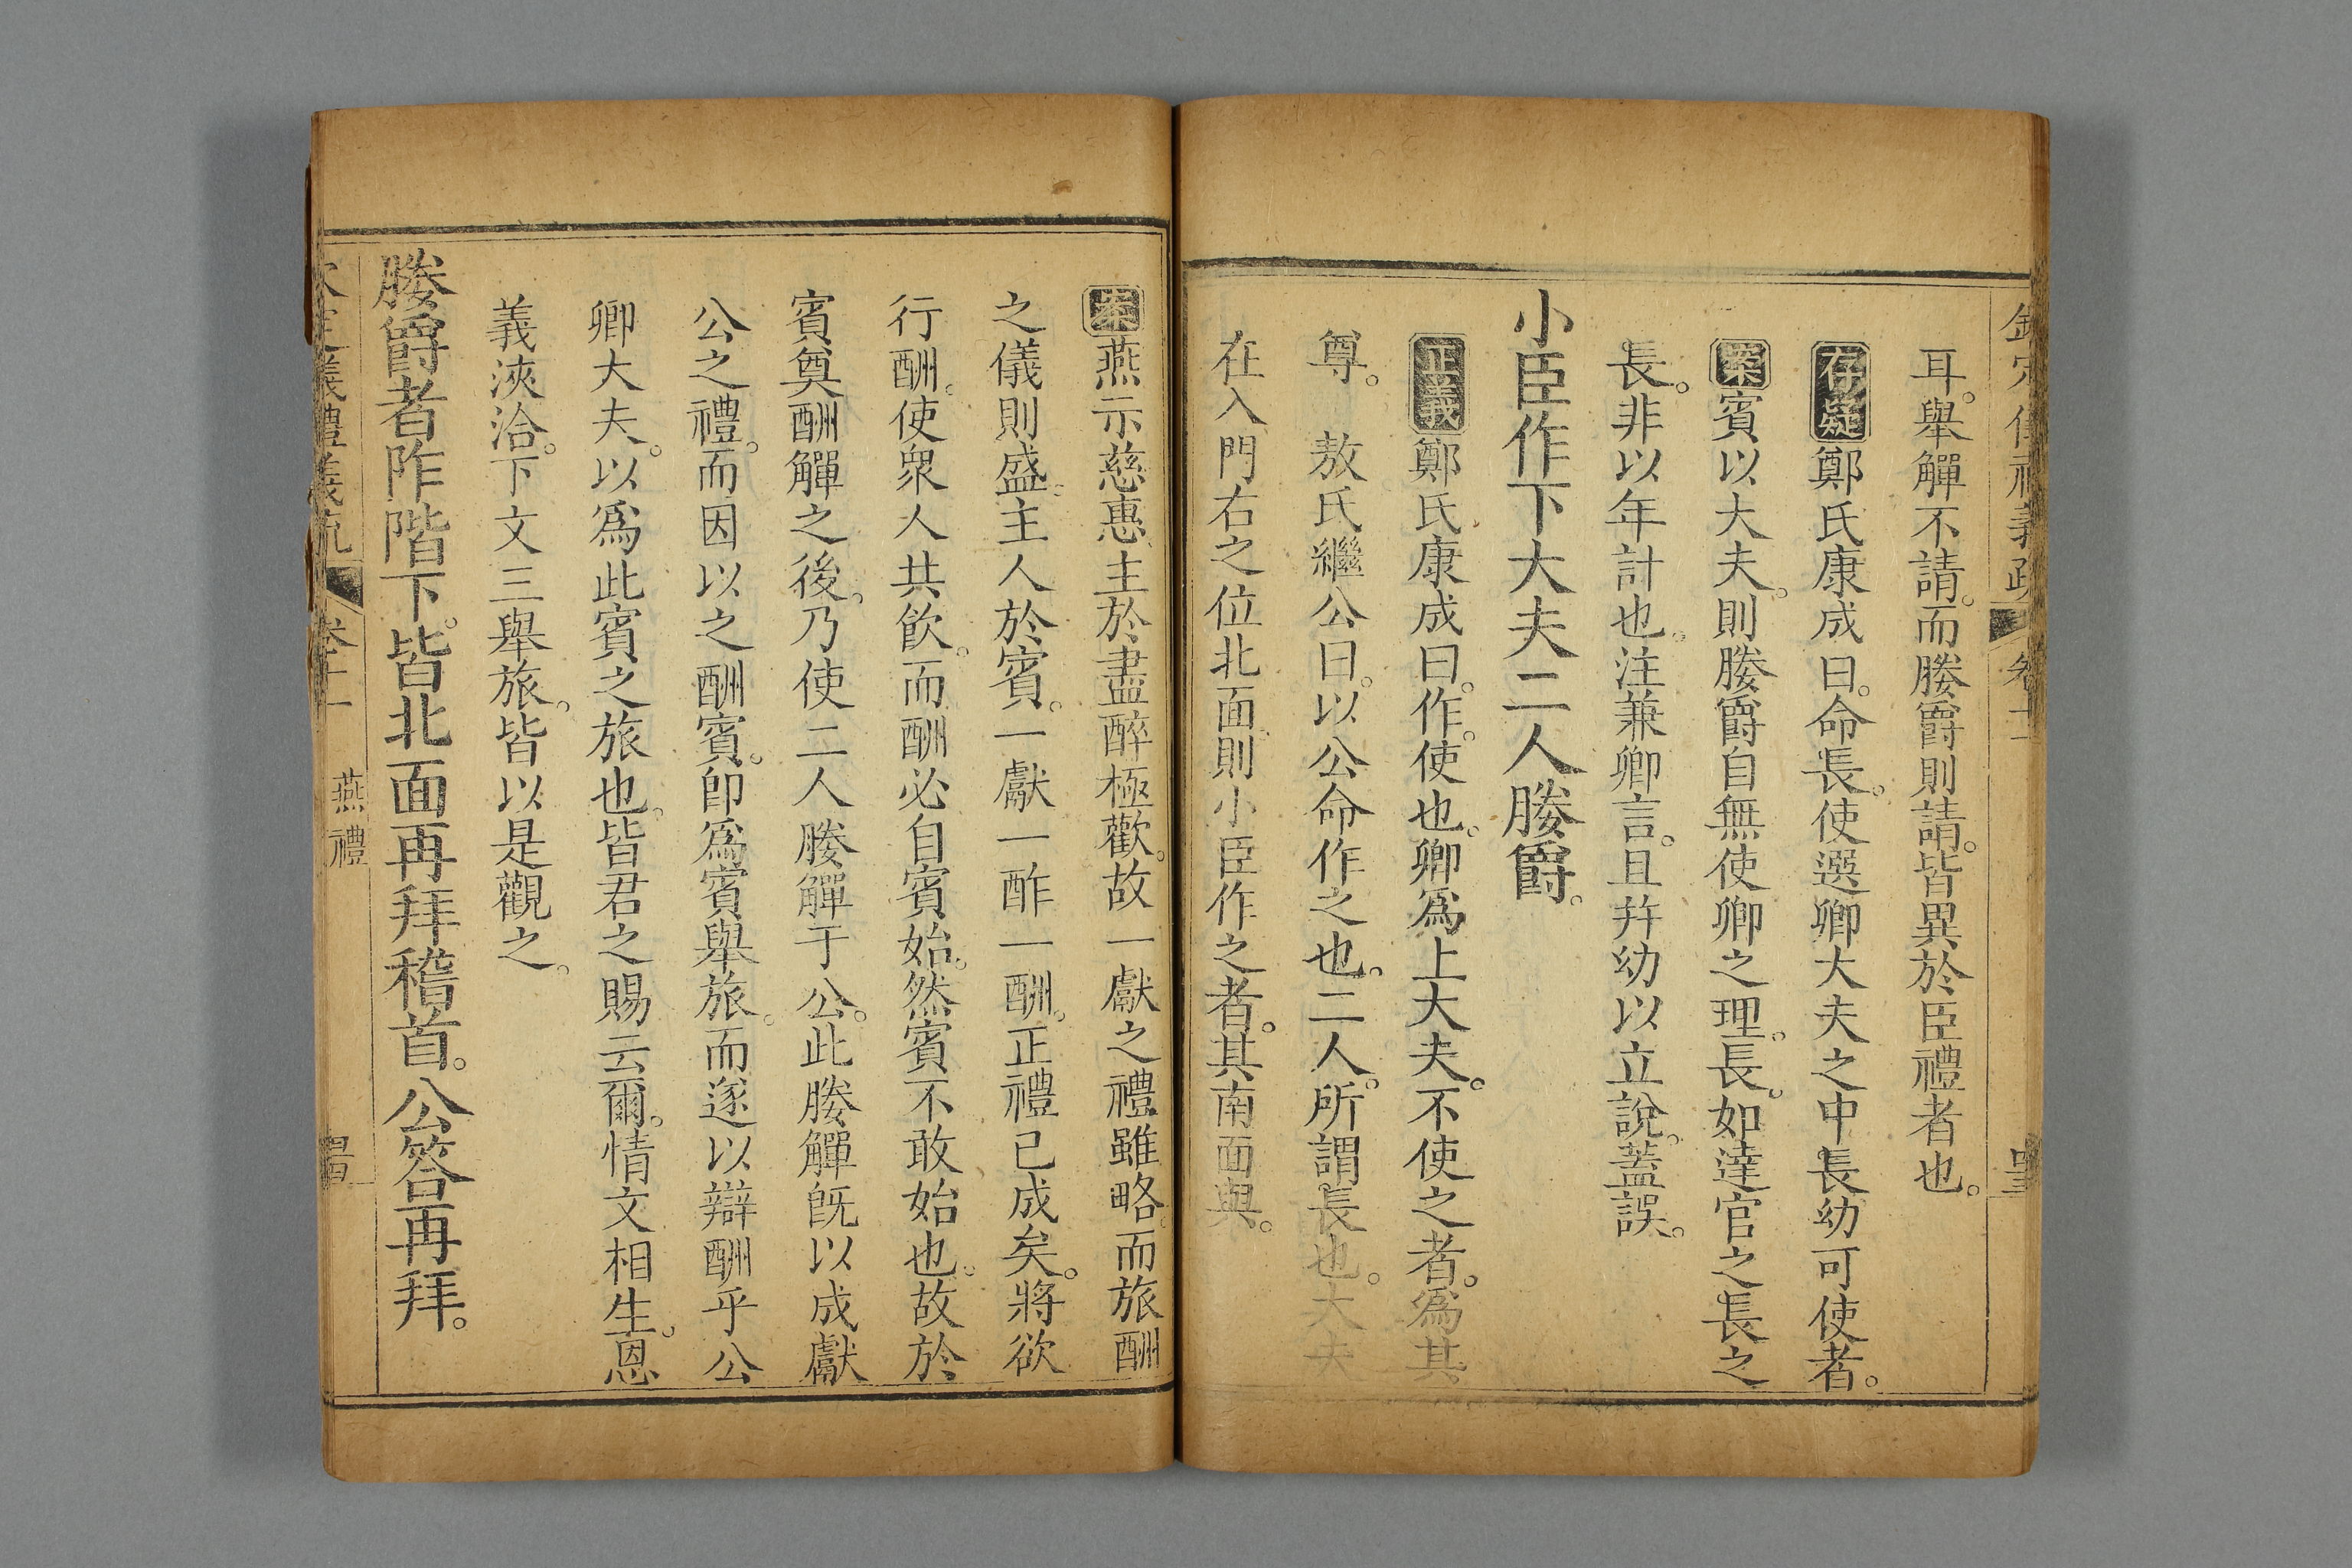 欽定儀禮義疏 卷十一
耳。舉觶不請。而媵爵則請。皆異於臣禮者也。
存疑鄭氏康成曰。命長。使選卿大夫之中長幼可使者。
案賓以大夫。則媵爵自無使卿之理。長。如達官之長之
長。非以年計也。注兼卿言。且幷幼以立說。蓋誤。
小臣作下大夫二人媵爵。
正義鄭氏康成曰。作。使也。卿爲上大夫。不使之者。爲其
尊。 敖氏繼公曰。以公命作之也。二人。所謂長也。大夫
在入門右之位北面。則小臣作之者。其南面與。
案燕示慈惠。主於盡醉極歡。故一獻之禮雖略。而旅酬
之儀則盛。主人於賓。一獻一酢一酬。正禮已成矣。將欲
行酬。使眾人共飲。而酬必自賓始。然賓不敢始也。故於
賓奠酬觶之後。乃使二人媵觶于公。此媵觶旣以成獻
公之禮。而因以之酬賓。卽爲賓舉旅。而遂以辯酬乎公
卿大夫。以爲此賓之旅也。皆君之賜云爾。情文相生。恩
義浹洽。下文三舉旅。皆以是觀之。
媵爵者阼階下。皆北面再拜稽首。公答再拜。
義禮義疏 卷十一 燕禮